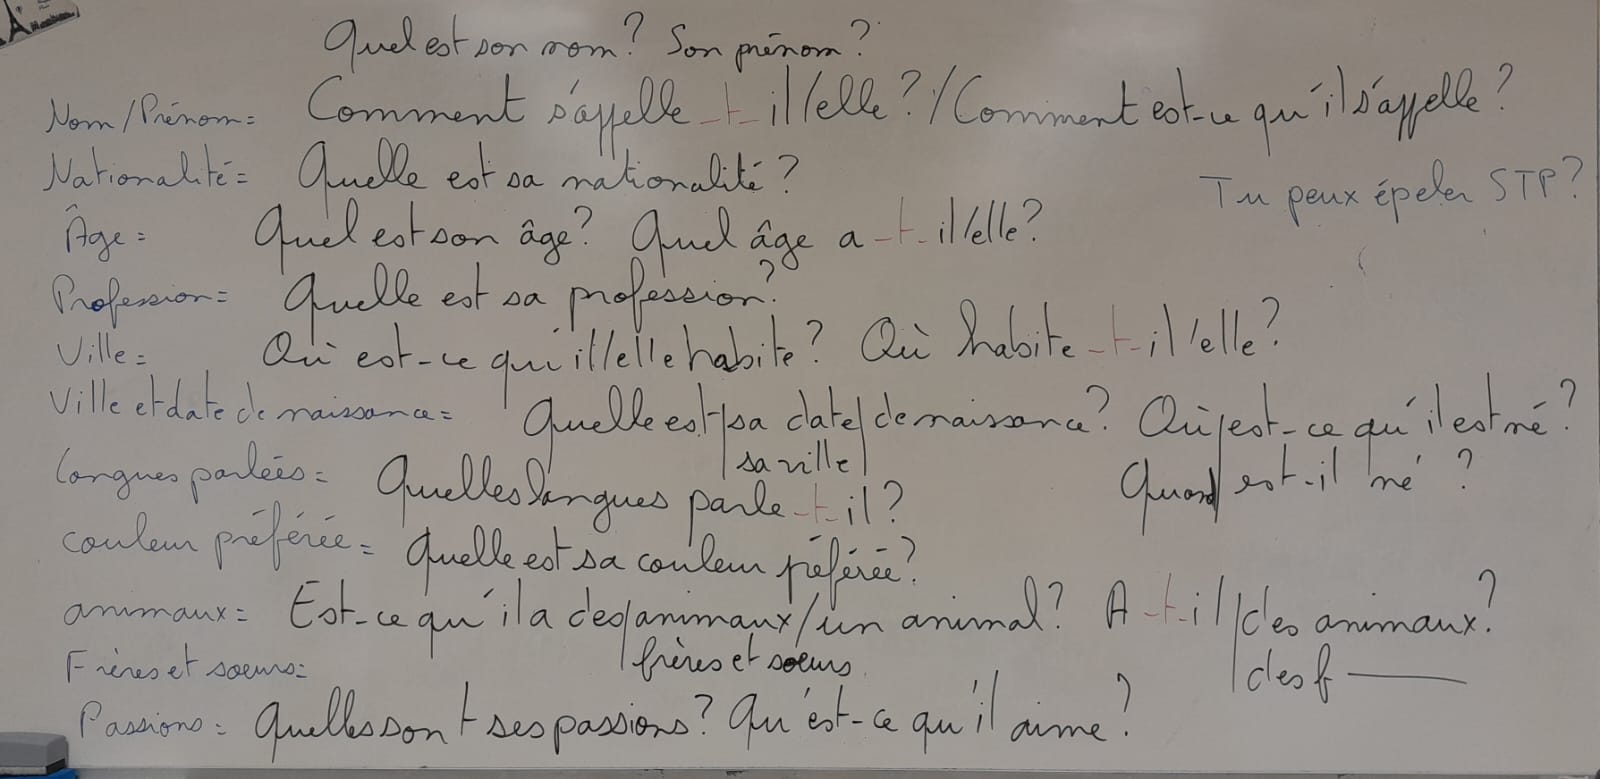 Quel est son nom? Son prénom?
Nom/Prénom= Comment s'appelle-t-il/elle?/Comment est-ce qu'il s'appelle?
Nationalité= Quelle est sa nationalité?
Tu peux épeler STP?
Âge= Quel est son âge? Quel âge a-t-il/elle?
Profession= Quelle est sa profession?
Ville= Où est-ce qu'il/elle habite? Où habite-t-il/elle?
Ville et date de naissance= Quelle est/sa date/de naissance? Où/est-ce qu'il est né?
/sa ville/
Quand/est-il né?
Langues parlées= Quelles langues parle-t-il?
couleur préférée= Quelle est sa couleur préférée?
animaux= Est-ce qu'il a des/animaux/un animal? A-t-il/des animaux?
Frères et soeurs= /frères et soeurs /des f
Passions= Quelles sont ses passions? Qu'est-ce qu'il aime?